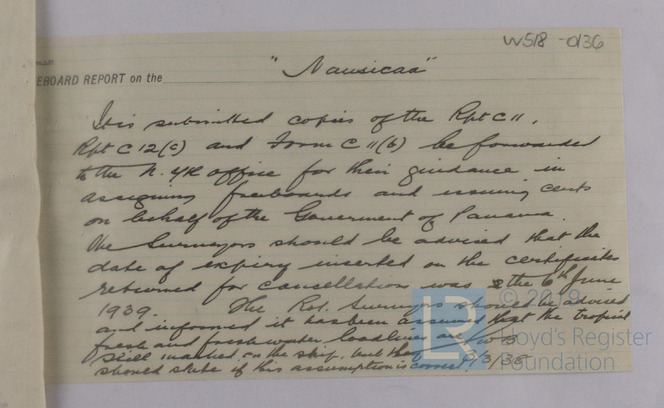 W518-0136
EBOARD REPORT on the "Nausicaa"
It is submitted copies of the Rpt C 11,
Rpt C 12(c) and Form C 11(b) be forwarded
to the N. YK office for their guidance in
assigning freeboards and issuing certs
on behalf of the Government of Panama.
The Surveyors should be advised that the
date of expiry inserted on the certificates
returned for cancellation was the 6th June
1939. The Rot. Surveyors should be advised
and informed it has been assumed that the tropical
fresh and fresh water loadlines are
still marked on the ship, but they
should state if this assumption is correct
8/3/38
© 2019
LR
Lloyd's Register
Foundation